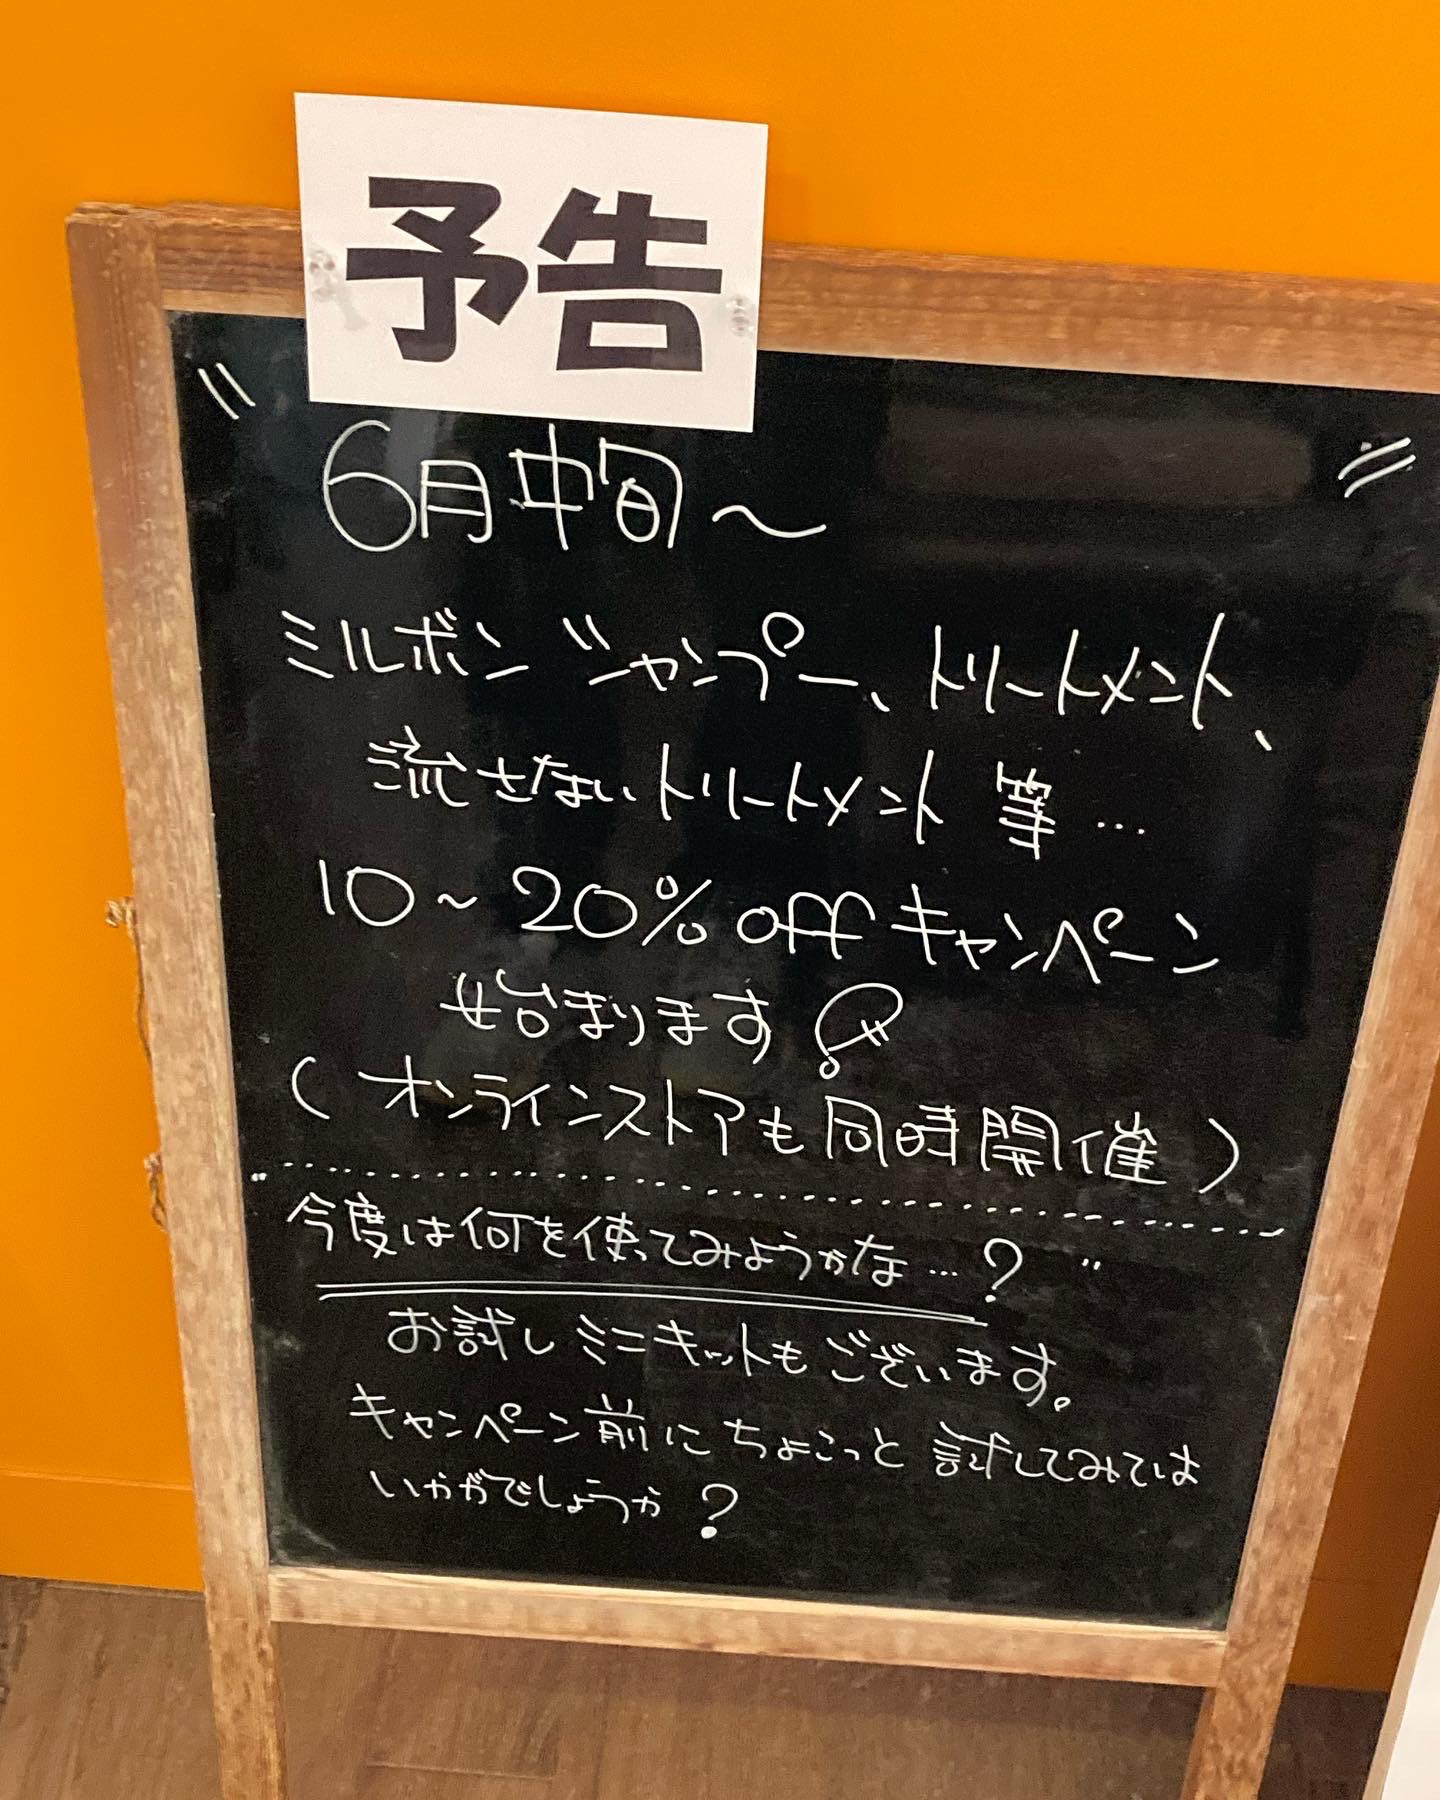 予告
6月中旬〜
ミルボン シャンプー、トリートメント、
流さないトリートメント 等…
10〜20% off キャンペーン
始まります!
(オンラインストアも同時開催)
今度は何を使ってみようかな…?
お試しミニキットもございます。
キャンペーン前にちょこっと試してみては
いかがでしょうか?